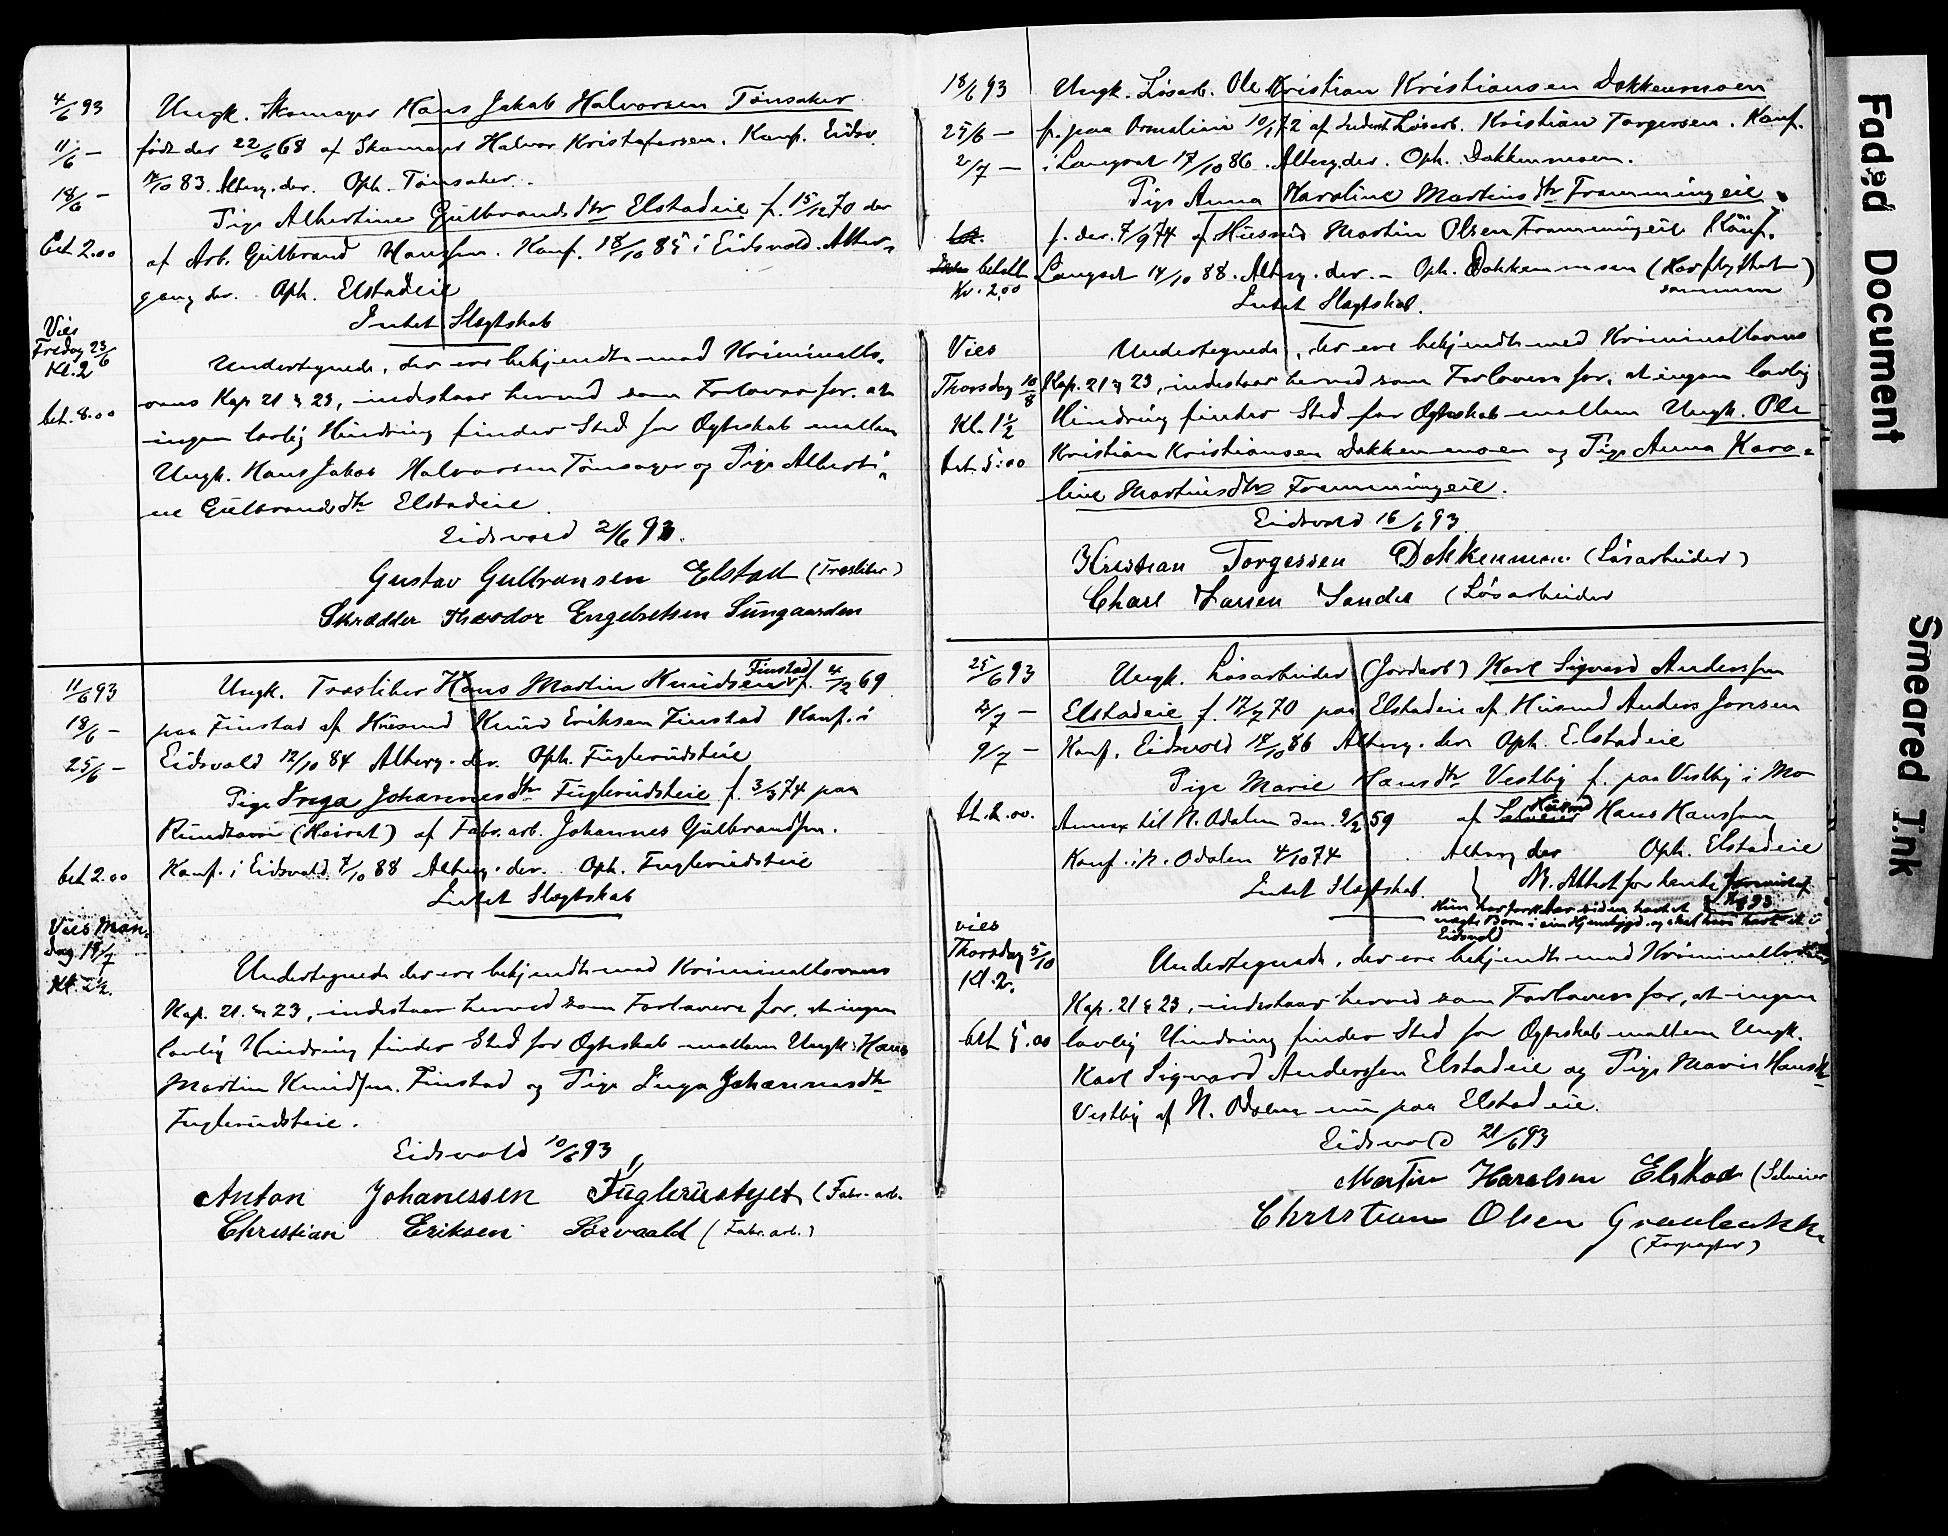 4/6 93
11/6 -
18/6 -
bet 2.00
Vies
Fredag 23/6
Kl. 2
bet. 8.00
Ungk. Skomager Hans Jakob Halvorsen Tønsaker
født der 22/6 68 af Skomager Halvor Kristofersen. Konf. Eidsv.
83. Alterg. der. Oph. Tønsaker.
Pige Albertine Gulbrandsdtr Elstadeie f. 15/12 70 der
af Arb. Gulbrand Hanssen. Konf. 18/10 85 i Eidsvold. Alter-
gang der. Oph. Elstadeie
Intet Slægtskab
Undertegnede, der ere bekjendte med Kriminallo-
vens Kap 21 & 23, indestaar herved som Forlovere for, at
ingen lovlig Hindring finder Sted for Ægteskab mellem
Ungk. Hans Jakob Halvorsen Tønsager og Pige Alberti-
ne Gulbrandsdtr Elstadeie.
Eidsvold 2/6 93.
Gustav Gulbransen Elstad (Træsliber)
Skrædder Theodor Engebretsen Sungaarden
11/6 93
18/6 -
25/6 -
bet 2.00
Vies Man-
dag
Kl. 2½.
Ungk. Træsliber Hans Martin Knudsen Finstad f. 4/2 69
paa Finstad af Husmd Knud Eriksen Finstad Konf. i
Eidsvold 12/10 84 Alterg. der. Oph. Fuglerudsteie
Pige Inga Johannesdtr Fuglerudsteie f. 3/3 74 paa
(Heirat) af Fabr. arb. Johannes Gulbrandsen.
Konf. i Eidsvold 7/10 88 Alterg. der. Oph. Fuglerudsteie
Intet Slægtskab
Undertegnede der ere bekjendte med Kriminallovens
Kap. 21 & 23, indestaar herved som Forlovere for, at ingen
lovlig Hindring finder Sted for Ægteskab mellem Ungk. Hans
Martin Knudsen Finstad og Pige Inga Johannesdtr
Fuglerudsteie.
Eidsvold 10/6 93
Anton Johanessen Fuglerustejet (Fabr. arb.
Christian Eriksen Sørvaald (Fabr. arb.)
18/6 93
25/6 -
2/7 -
betalt
Kr. 2.00
Vies
Thorsdag 10/8
Kl. 1½
bet. 5.00
Ungk. Løsarb. Ole Kristian Kristiansen Dokkenmoen
f. paa 10/1 72 af Løsarb. Kristian Torgersen. Konf.
i Langset 17/10 86. Alterg. der. Oph. Dokkenmoen.
Pige Anna Karoline Martinsdtr Framningeie
f. der. 7/9 74 af Husmd Martin Olsen Framningeie Konf.
Langset 14/10 88. Alterg. der. - Oph. Dokkenmoen (Har flyttet
sammen)
Intet Slægtskab.
Undertegnede, der ere bekjendte med Kriminallovens
Kap. 21 & 23, indestaar herved som Forlovere for, at ingen lovlig
Hindring finder Sted for Ægteskab mellem Ungk. Ole
Kristian Kristiansen Dokkenmoen og Pige Anna Karo-
line Martinsdtr Framningeie.
Eidsvold 16/6 93
Kristian Torgessen Dokkenmoen (Løsarbeider)
Charl Larsen Sander (Løsarbeider
25/6 93
2/7 -
9/7 -
bt. 2.00.
vies
Thorsdag 5/10
Kl. 2.
bet 5.00
Ungk. Løsarbeider (Jordarb) Karl Sigvard Anderssen
Elstadeie f. 17/7 70 paa Elstadeie af Husmd Anders Jonsen
Konf. Eidsvold 18/10 86 Alterg. der Oph. Elstadeie
Pige Marie Hansdtr Vestby f. paa Vestby i Mo
Annex til N. Odalen den. 9/2 59 af Selveier Husmd Hans Hanssen
Konf. i N. Odalen 4/10 74. Alterg der Oph. Elstadeie
Intet Slægtskab. NB. Attest for hende
93
Hun har for siden havt et
uægte Barn i sin Hjembygd og skal have havt et i
Eidsvold
Undertegnede, der ere bekjendte med Kriminallovens
Kap. 21 & 23, indestaar herved som Forlovere for, at ingen
lovlig Hindring finder Sted for Ægteskab mellem Ungk.
Karl Sigvard Anderssen Elstadeie og Pige Marie Hansdtr
Vestby af N. Odalen nu paa Elstadeie.
Eidsvold 21/6 93
Martin Haralsen Elstad (Selveier
Christian Olsen Graalenkk
(Forpagter)
Faded Document
Smeared Ink